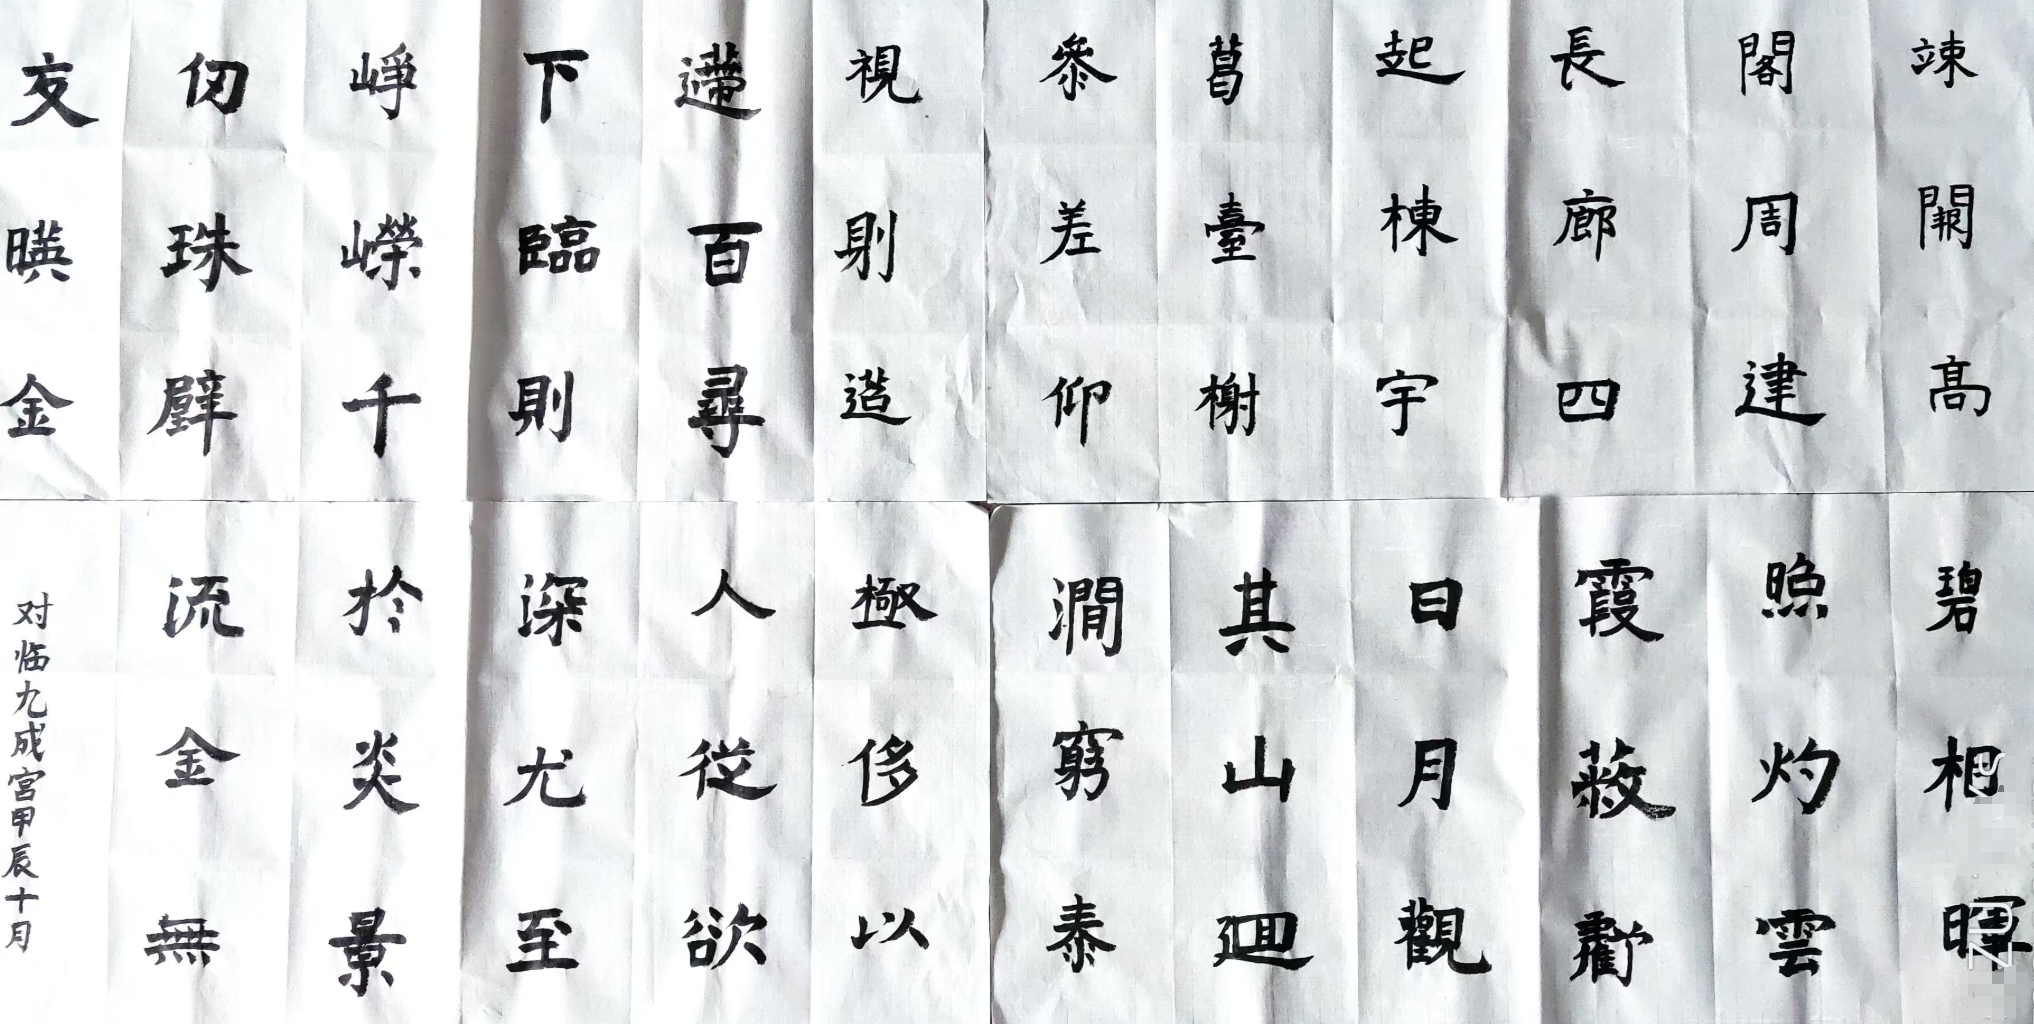 竦闕高
閣周建
長廊四
起棟宇
葛臺榭
參差仰
視則迢
遰百尋
下臨則
崢嶸千
仞珠璧
交暎金
碧相暉
照灼雲
霞蔽虧
日月觀
其山廻
澗窮泰
極侈以
人從欲
深尤至
於炎景
流金無
对临九成宫甲辰十月